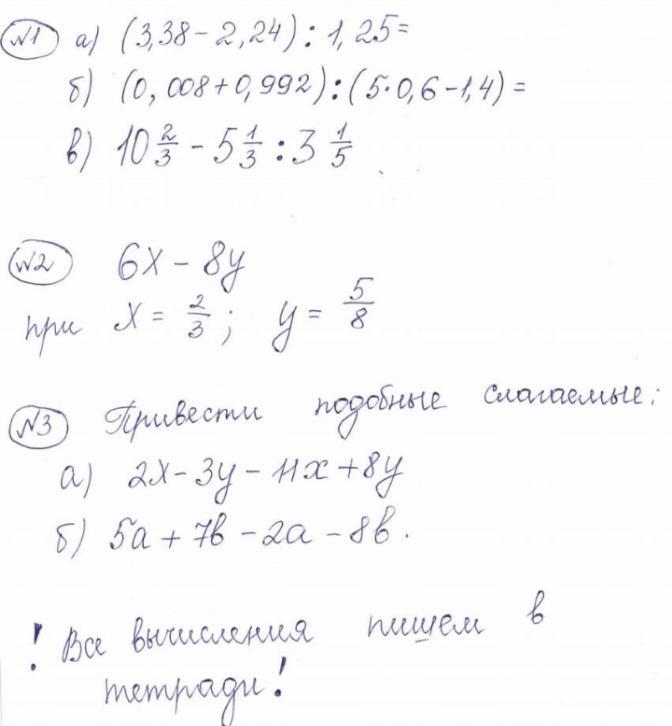 №1 а) (3,38 - 2,24) : 1,25 =
б) (0,008 + 0,992) : (5·0,6 - 1,4) =
в) 10 2/3 - 5 1/3 : 3 1/5
№2 6x - 8y
при x = 2/3 ; y = 5/8
№3 Привести подобные слагаемые:
а) 2x - 3y - 11x + 8y
б) 5a + 7b - 2a - 8b.
! Все вычисления пишем в
тетради!